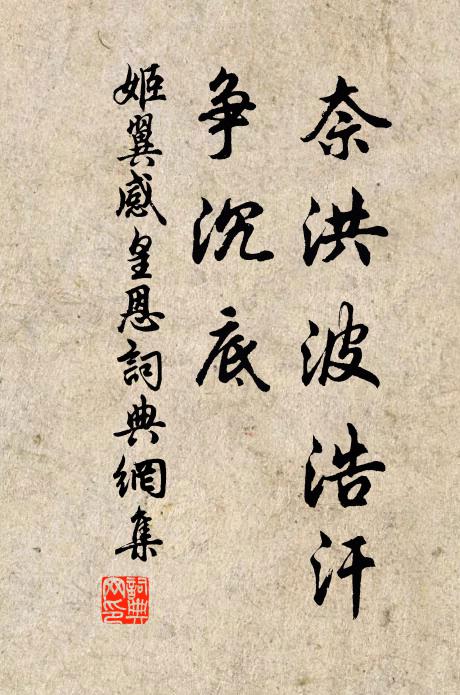 奈洪波浩汗
争沉底
姬翼感皇恩詞典網集
詞典網印